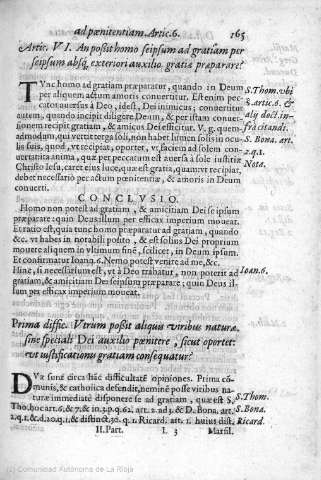 ad pœnitentiam. Artic. 6. 165
Artic. VI. An poßit homo seipsum ad gratiam per
seipsum absq; exteriori auxilio gratiæ præparare?
TVnc homo ad gratiam præparatur, quando in Deum
per aliquem actum amoris conuertitur. Est enim pec-
cator auersus à Deo, idest, Dei inimicus, conuertitur
autem, quando incipit diligere Deum, & per istam conuer-
sionem recipit gratiam, & amicus Dei efficitur. V. g. quem-
admodum, qui vertit terga soli, non habet lumen solis in ocu-
lis suis, quod, vt recipiat, oportet, vt faciem ad solem con-
uertat: ita anima, quæ per peccatum est auersa à sole iustitiæ
Christo Iesu, caret eius luce, quæ est gratia, quam vt recipiat,
debet necessario per actum pœnitentiæ, & amoris in Deum
conuerti.
S. Thom. vbi
s. artic. 6. &
alij doct. in-
fra citandi.
S. Bona. art.
2. q. 1.
Nota.
CONCLVSIO.
Homo non potest ad gratiam, & amicitiam Dei se ipsum
præparare: quin Deus illum per efficax imperium moueat.
Et ratio est, quia tunc homo præparatur ad gratiam, quando
&c. vt habes in notabili posito, & est solius Dei proprium
mouere aliquem in vltimum finé, scilicet, in Deum ipsum.
Et confirmatur Ioann. 6. Nemo potest venire ad me, &c.
Hinc, si necessarium est, vt à Deo trahatur, non poterit ad
gratiam, & amicitiam Dei seipsum præparare; quin Deus il-
lum per efficax imperium moueat.
Ioan. 6.
Prima diffic. Vtrum poßit aliquis viribus naturæ,
sine speciali Dei auxilio pœnitere, sicut oportet:
vt iustificationis gratiam consequatur?
DVæ sunt circa hác difficultaté opiniones. Prima có-
munis, & catholica defendit, neminé posse viribus na-
turæ immediatè disponere se ad gratiam, quæ est S.
Tho. hoc art. 6. & 7. & in 3. p. q. 62. art. 2. ad 3. & D. Bona. art.
2. q. 1. & d. 20. q. 1. & distinct. 30. q. 1. Ricard. art. 1. huius dist.
S. Thom.
S. Bona.
Ricard.
II. Part. L 3 Marsil.
(c) Comunidad Autónoma de La Rioja